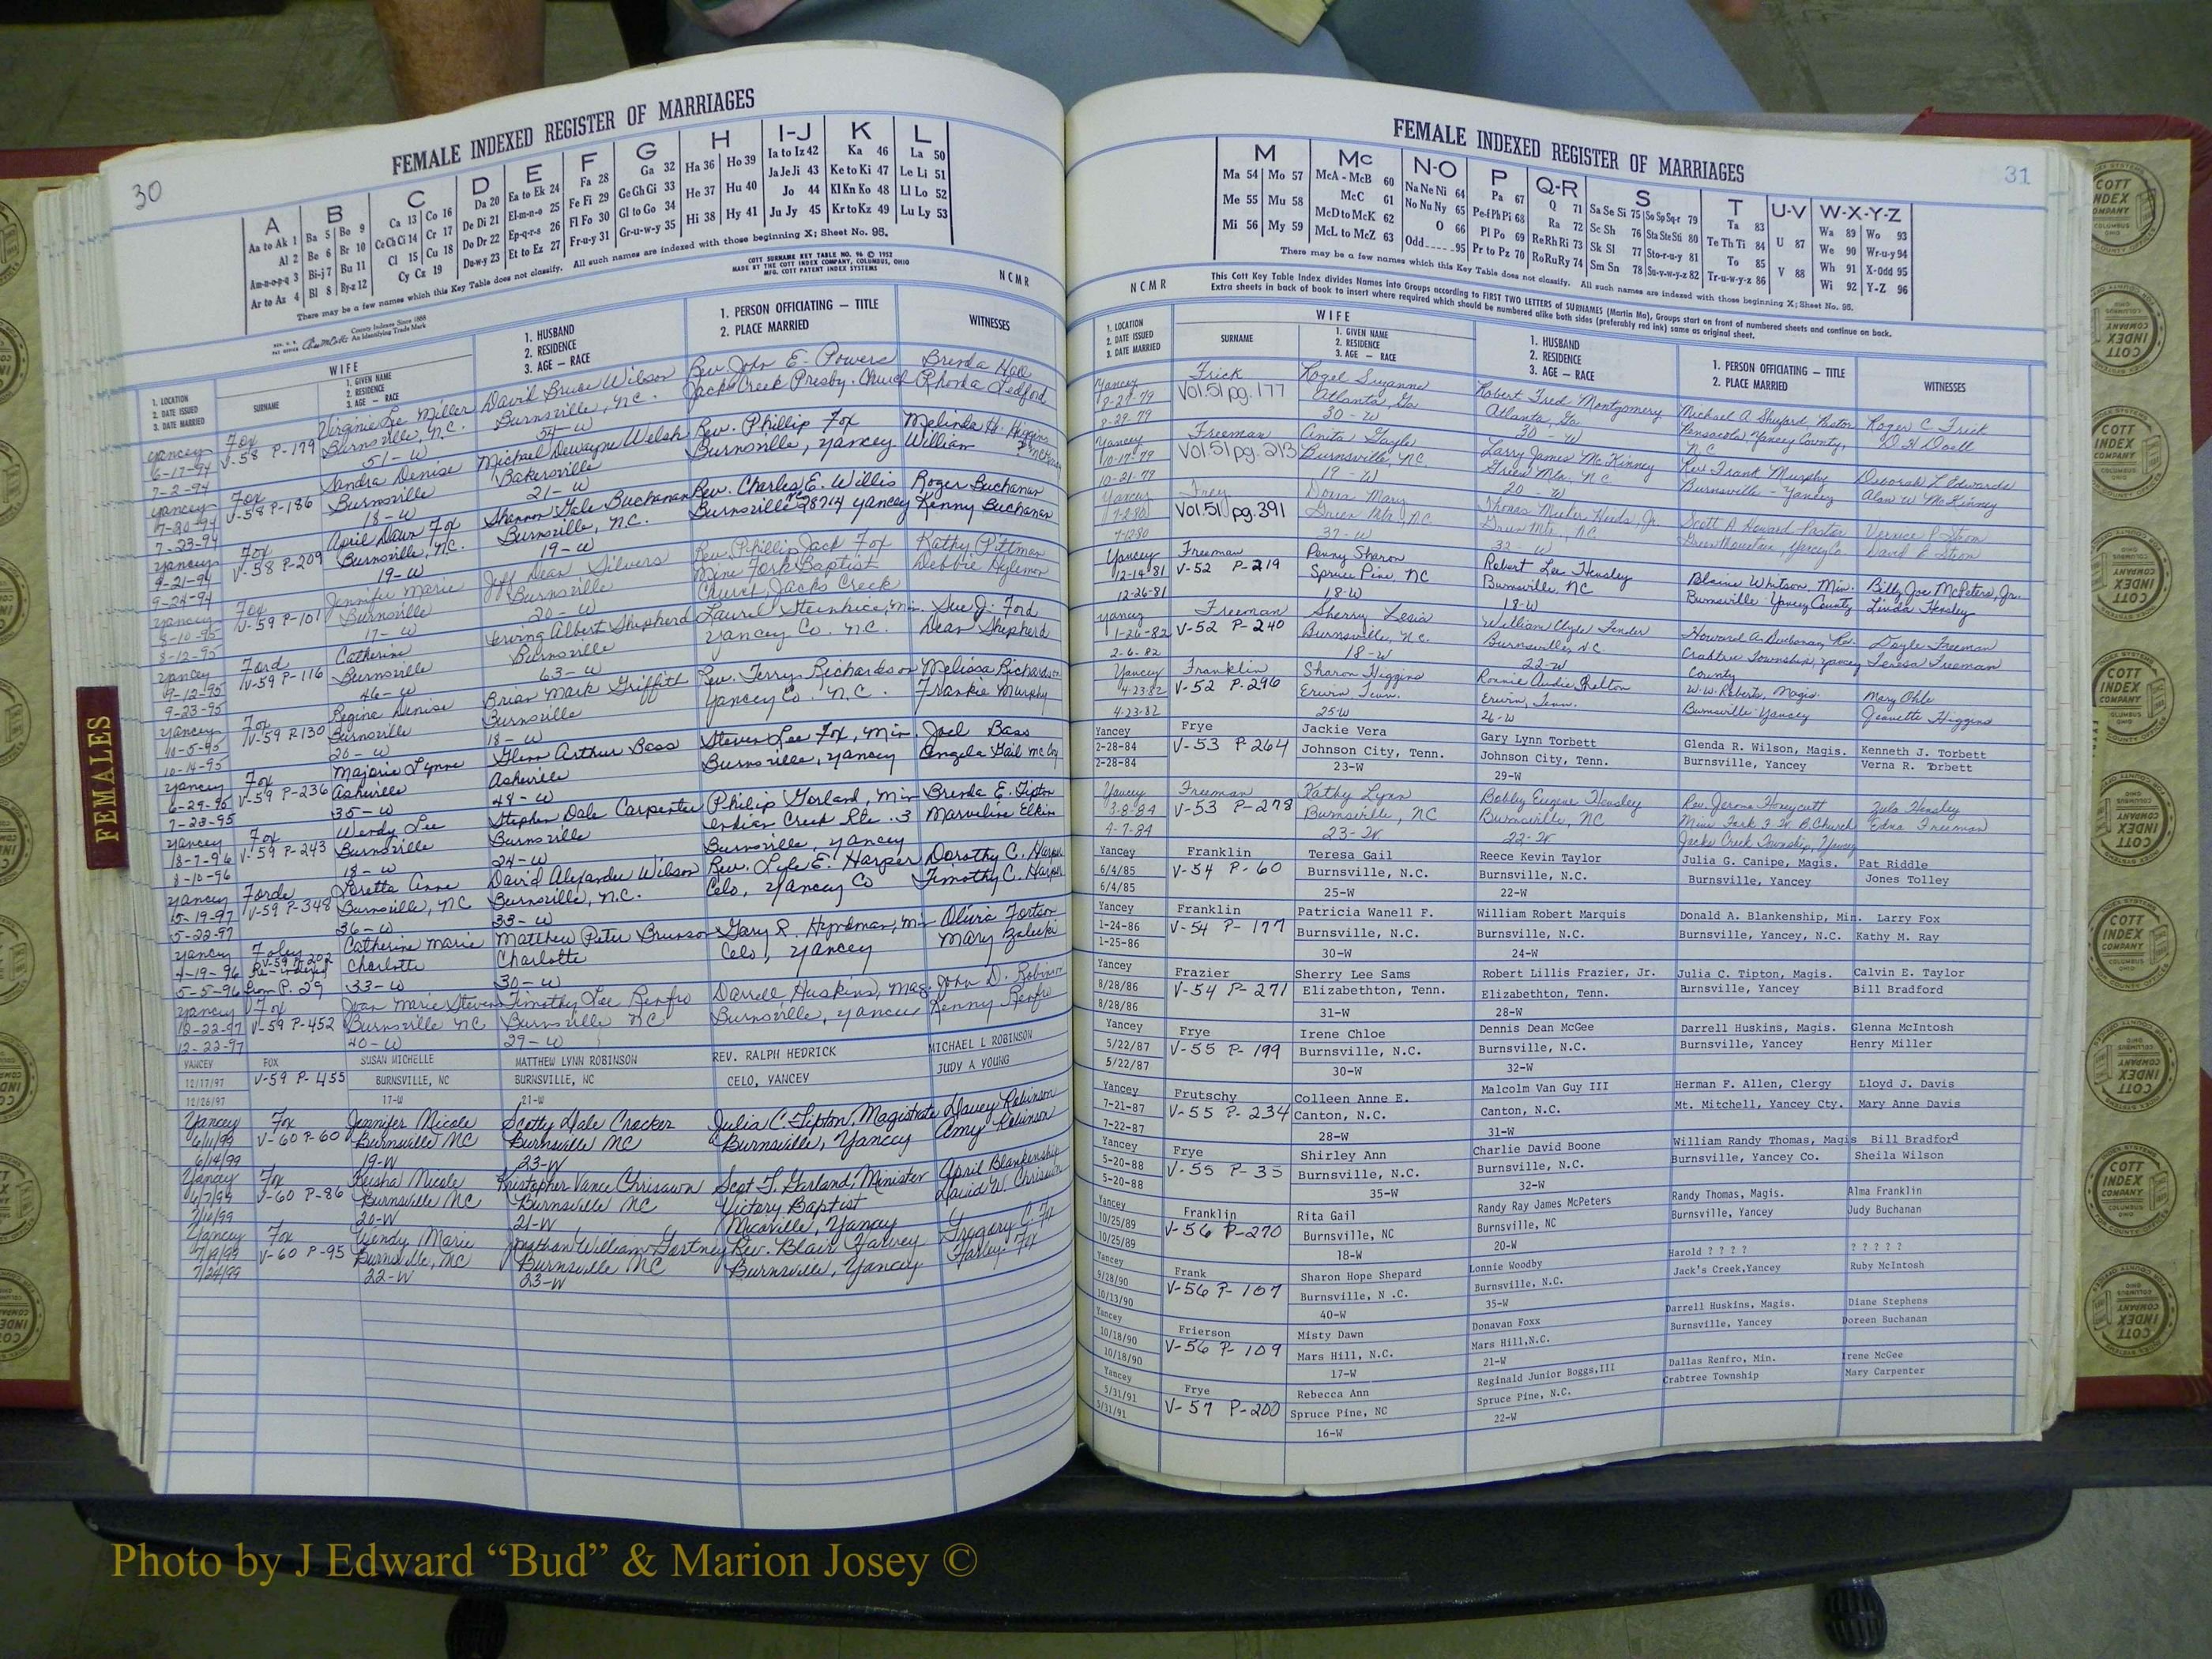 30
FEMALE INDEXED REGISTER OF MARRIAGES
A B C D E F G H I-J K L
Aa to Ak 1 Ba 5 Bo 9 Ca 13 Co 16 Da 20 Ea to Ek 24 Fa 28 Ga 32 Ha 36 Ho 39 Ia to Iz 42 Ka 46 La 50
Al 2 Be 6 Br 10 Ce Ch Ci 14 Cr 17 De Di 21 El-m-n-o 25 Fe Fi 29 Ge Gh Gi 33 He 37 Hu 40 Ja Je Ji 43 Ke to Ki 47 Le Li 51
Am-n-o-p-q 3 Bi-j 7 Bu 11 Cl 15 Cu 18 Do Dr 22 Ep-q-r-s 26 Fl Fo 30 Gl to Go 34 Hi 38 Hy 41 Jo 44 Kl Kn Ko 48 Ll Lo 52
Ar to Az 4 Bl 8 By-z 12 Cy Cz 19 Du-w-y 23 Et to Ez 27 Fr-u-y 31 Gr-u-w-y 35 Ju Jy 45 Kr to Kz 49 Lu Ly 53
There may be a few names which this Key Table does not classify. All such names are indexed with those beginning X; Sheet No. 95.
County Indexes Since 1888
An Identifying Trade Mark
COTT SURNAME KEY TABLE NO. 96 © 1952
MADE BY THE COTT INDEX COMPANY, COLUMBUS, OHIO
MFG. COTT PATENT INDEX SYSTEMS
NCMR
1. LOCATION
2. DATE ISSUED
3. DATE MARRIED
WIFE
SURNAME
1. GIVEN NAME
2. RESIDENCE
3. AGE — RACE
1. HUSBAND
2. RESIDENCE
3. AGE — RACE
1. PERSON OFFICIATING — TITLE
2. PLACE MARRIED
WITNESSES
Yancey Fox Virginia Lee Miller David Bruce Wilson Rev. John E. Powers Brenda Hall
6-17-94 V-58 P-179 Burnsville, N.C. Burnsville, N.C. Jacks Creek Presby. Church Rhonda Ledford
7-2-94 51-W 54-W
Yancey Fox Sandra Denise Michael Dewayne Welsh Rev. Phillip Fox Melinda H. Higgins
V-58 P-186 Burnsville Bakersville Burnsville, Yancey William
7-23-94 18-W 21-W
Yancey Fox April Dawn Fox Shannon Gale Buchanan Rev. Charles E. Willis Roger Buchanan
9-21-94 V-58 P-209 Burnsville, N.C. Burnsville, N.C. Burnsville NC 28714 Yancey Kenny Buchanan
9-24-94 19-W 19-W
Yancey Fox Jennifer Marie Jeff Dean Silvers Rev. Phillip Jack Fox Kathy Pittman
8-10-95 V-59 P-101 Burnsville Burnsville Mine Fork Baptist Debbie Hylemon
8-12-95 17-W 20-W Church, Jacks Creek
Yancey Ford Catherine Irving Albert Shepherd Laurel Steinhice, Min. Sue J. Ford
9-12-95 V-59 P-116 Burnsville Burnsville Yancey Co. N.C. Dean Shepherd
9-23-95 46-W 63-W
Yancey Fox Regina Denise Brian Mark Griffith Rev. Terry Richardson Melissa Richardson
10-5-95 V-59 P.130 Burnsville Burnsville Yancey Co. N.C. Frankie Murphy
10-14-95 20-W 18-W
Yancey Fox Majorie Lynne Glenn Arthur Bass Steven Lee Fox, Min. Joel Bass
V-59 P-236 Asheville Asheville Burnsville, Yancey Angela Gail McCoy
35-W 48-W
Yancey Fox Wendy Lee Stephen Dale Carpenter Philip Garland, Min Brenda E. Tipton
V-59 P-243 Burnsville Burnsville Indian Creek Rte. 3 Marveline Elkins
8-10-96 18-W 24-W Burnsville, Yancey
Yancey Forde Loretta Anne David Alexander Wilson Rev. Lyle E. Harper Dorothy C. Harper
5-19-97 V-59 P-348 Burnsville, NC Burnsville, N.C. Celo, Yancey Co Timothy C. Harper
5-22-97 36-W 33-W
Yancey Foley Catherine Marie Matthew Peter Brunson Gary R. Hyndman, Min
4-19-96 V-59 P.202 Charlotte Charlotte Celo, Yancey Mary
5-5-96 Re-indexed from P. 29 33-W 30-W
Yancey Fox Joan Marie Stevens Timothy Lee Renfro Darrell Huskins, Mag. John D. Robinson
12-22-97 V-59 P-452 Burnsville NC Burnsville NC Burnsville, Yancey Kenny Renfro
12-22-97 40-W 29-W
YANCEY FOX SUSAN MICHELLE MATTHEW LYNN ROBINSON REV. RALPH HEDRICK MICHAEL L ROBINSON
12/17/97 V-59 P-455 BURNSVILLE, NC BURNSVILLE, NC CELO, YANCEY JUDY A YOUNG
12/26/97 17-W 21-W
Yancey Fox Jennifer Nicole Scotty Dale Crocker Julia C. Tipton, Magistrate Davey Robinson
6/11/99 V-60 P-60 Burnsville NC Burnsville NC Burnsville, Yancey Amy Robinson
6/14/99 19-W 23-W
Yancey Fox Keisha Nicole Kristopher Vance Chrisawn Scot T. Garland, Minister April Blankenship
V-60 P-86 Burnsville NC Burnsville NC Victory Baptist David W. Chrisawn
7/10/99 20-W 21-W Micaville, Yancey
Yancey Fox Wendy Marie Jonathan William Gortney Rev. Blair Harvey Gregory C. Fox
V-60 P-95 Burnsville, NC Burnsville NC Burnsville, Yancey Farley Fox
7/24/99 22-W 23-W
FEMALES
31
FEMALE INDEXED REGISTER OF MARRIAGES
M Mc N-O P Q-R S T U-V W-X-Y-Z
Ma 54 Mo 57 McA - McB 60 Na Ne Ni 64 Pa 67 Q 71 Sa Se Si 75 So Sp Sq-r 79 Ta 83 U 87 Wa 89 Wo 93
Me 55 Mu 58 McC 61 No Nu Ny 65 Pe-f Ph Pi 68 Ra 72 Sc Sh 76 Sta Ste Sti 80 Te Th Ti 84 V 88 We 90 Wr-u-y 94
Mi 56 My 59 McD to McK 62 O 66 Pl Po 69 Re Rh Ri 73 Sk Sl 77 Sto-r-u-y 81 To 85 Wh 91 X-Odd 95
McL to McZ 63 Odd 95 Pr to Pz 70 Ro Ru Ry 74 Sm Sn 78 Su-v-w-y-z 82 Tr-u-w-y-z 86 Wi 92 Y-Z 96
There may be a few names which this Key Table does not classify. All such names are indexed with those beginning X; Sheet No. 95.
NCMR
This Cott Key Table Index divides Names into Groups according to FIRST TWO LETTERS of SURNAMES (Martin Ma), Groups start on front of numbered sheets and continue on back.
Extra sheets in back of book to insert where required which should be numbered alike both sides (preferably red ink) same as original sheet.
1. LOCATION
2. DATE ISSUED
3. DATE MARRIED
WIFE
SURNAME
1. GIVEN NAME
2. RESIDENCE
3. AGE — RACE
1. HUSBAND
2. RESIDENCE
3. AGE — RACE
1. PERSON OFFICIATING — TITLE
2. PLACE MARRIED
WITNESSES
Yancey Frick Rogel Suzanne Robert Fred Montgomery Michael A Shepard, Pastor Roger C. Frick
8-27-79 Vol.51 pg.177 Atlanta, Ga Atlanta, Ga. Pensacola, Yancey County,
8-29-79 30-W 30-W NC
Yancey Freeman Anita Gayle Larry James McKinney Rev. Frank Murphy Deborah L Edwards
10-17-79 Vol.51 pg.213 Burnsville, NC. Green Mtn, NC Burnsville - Yancey Alan W McKinney
10-21-79 19-W 20-W
Yancey Frey Donna Mary Thomas Meeler Hinds, Jr. Scott A. Howard Pastor
7-2-80 Vol.51 pg.391 Green Mtn, NC Green Mtn., NC Green Mountain, Yancey Co.
37-W 32-W
Yancey Freeman Penny Sharon Robert Lee Hensley Blaine Whitson Min. Billy Joe McPeters, Jr.
12-14-81 V-52 P-219 Spruce Pine, NC Burnsville, NC Burnsville Yancey County Linda Hensley
12-26-81 18-W 18-W
Yancey Freeman Sherry Lesia William Clyde Howard A. Buchanan, Rev. Doyle Freeman
1-26-82 V-52 P-240 Burnsville, N.C. Burnsville, NC Crabtree Township, Yancey Teresa Freeman
2-6-82 18-W 22-W County
Yancey Franklin Sharon Higgins Ronnie Audie Shelton W.W. Roberts, Magis. Mary Ohle
4-23-82 V-52 P.296 Erwin Tenn. Erwin, Tenn. Burnsville Yancey Jeanette Higgins
4-23-82 25-W 26-W
Yancey Frye Jackie Vera Gary Lynn Torbett Glenda R. Wilson, Magis. Kenneth J. Torbett
2-28-84 V-53 P-264 Johnson City, Tenn. Johnson City, Tenn. Burnsville, Yancey Verna R. Torbett
2-28-84 23-W 29-W
Yancey Freeman Kathy Lynn Bobby Eugene Hensley Rev. Jerome Honeycutt Zula Hensley
3-8-84 V-53 P-278 Burnsville, NC Burnsville, NC Mine Fork F.W. B. Church Edna Freeman
4-7-84 23-W 22-W Jacks Creek Township, Yancey
Yancey Franklin Teresa Gail Reece Kevin Taylor Julia G. Canipe, Magis. Pat Riddle
6/4/85 V-54 P-60 Burnsville, N.C. Burnsville, N.C. Burnsville, Yancey Jones Tolley
6/4/85 25-W 22-W
Yancey Franklin Patricia Wanell F. William Robert Marquis Donald A. Blankenship, Min. Larry Fox
1-24-86 V-54 P-177 Burnsville, N.C. Burnsville, N.C. Burnsville, Yancey, N.C. Kathy M. Ray
1-25-86 30-W 24-W
Yancey Frazier Sherry Lee Sams Robert Lillis Frazier, Jr. Julia C. Tipton, Magis. Calvin E. Taylor
8/28/86 V-54 P-271 Elizabethton, Tenn. Elizabethton, Tenn. Burnsville, Yancey Bill Bradford
8/28/86 31-W 28-W
Yancey Frye Irene Chloe Dennis Dean McGee Darrell Huskins, Magis. Glenna McIntosh
5/22/87 V-55 P-199 Burnsville, N.C. Burnsville, N.C. Burnsville, Yancey Henry Miller
5/22/87 30-W 32-W
Yancey Frutschy Colleen Anne E. Malcolm Van Guy III Herman F. Allen, Clergy Lloyd J. Davis
7-21-87 V-55 P-234 Canton, N.C. Canton, N.C. Mt. Mitchell, Yancey Cty. Mary Anne Davis
7-22-87 28-W 31-W
Yancey Frye Shirley Ann Charlie David Boone William Randy Thomas, Magis Bill Bradford
5-20-88 V-55 P-35 Burnsville, N.C. Burnsville, N.C. Burnsville, Yancey Co. Sheila Wilson
5-20-88 35-W 32-W
Yancey Franklin Rita Gail Randy Ray James McPeters Randy Thomas, Magis. Alma Franklin
10/25/89 V-56 P-270 Burnsville, NC Burnsville, NC Burnsville, Yancey Judy Buchanan
10/25/89 18-W 20-W
Yancey Frank Sharon Hope Shepard Lonnie Woodby Harold ? ? ? ? ? ? ? ? ?
9/28/90 V-56 P-107 Burnsville, N .C. Burnsville, N.C. Jack's Creek,Yancey Ruby McIntosh
10/13/90 40-W 35-W
Yancey Frierson Misty Dawn Donavan Foxx Darrell Huskins, Magis. Diane Stephens
10/18/90 V-56 P-109 Mars Hill, N.C. Mars Hill,N.C. Burnsville, Yancey Doreen Buchanan
10/18/90 17-W 21-W
Yancey Frye Rebecca Ann Reginald Junior Boggs,III Dallas Renfro, Min. Irene McGee
5/31/91 V-57 P-200 Spruce Pine, NC Spruce Pine, N.C. Crabtree Township Mary Carpenter
5/31/91 16-W 22-W
Photo by J Edward “Bud” & Marion Josey ©